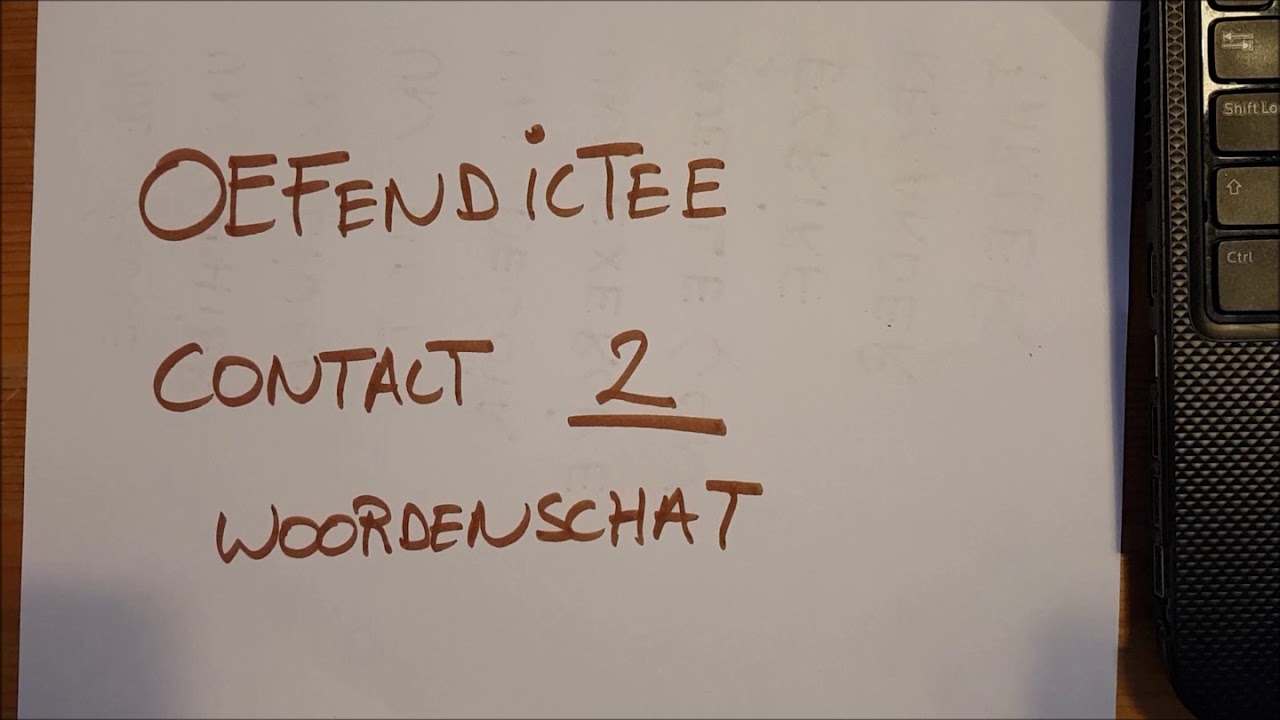 OEFENDiCTEE
CONTACT 2
WOORDENSCHAT
Shift Lo
Ctrl